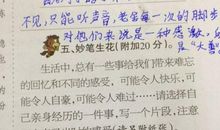 不见,只能听声音,老宫每一次的脚步
对他们来说是一种
五、妙笔生花(附加20分)。
生活中,总有一些事给我们带来难忘
的回忆和不同的感受,可能令人快乐,可
能令人自豪,可能令人难过……请选择自
己亲身经历的一件事,写一个片段,注意